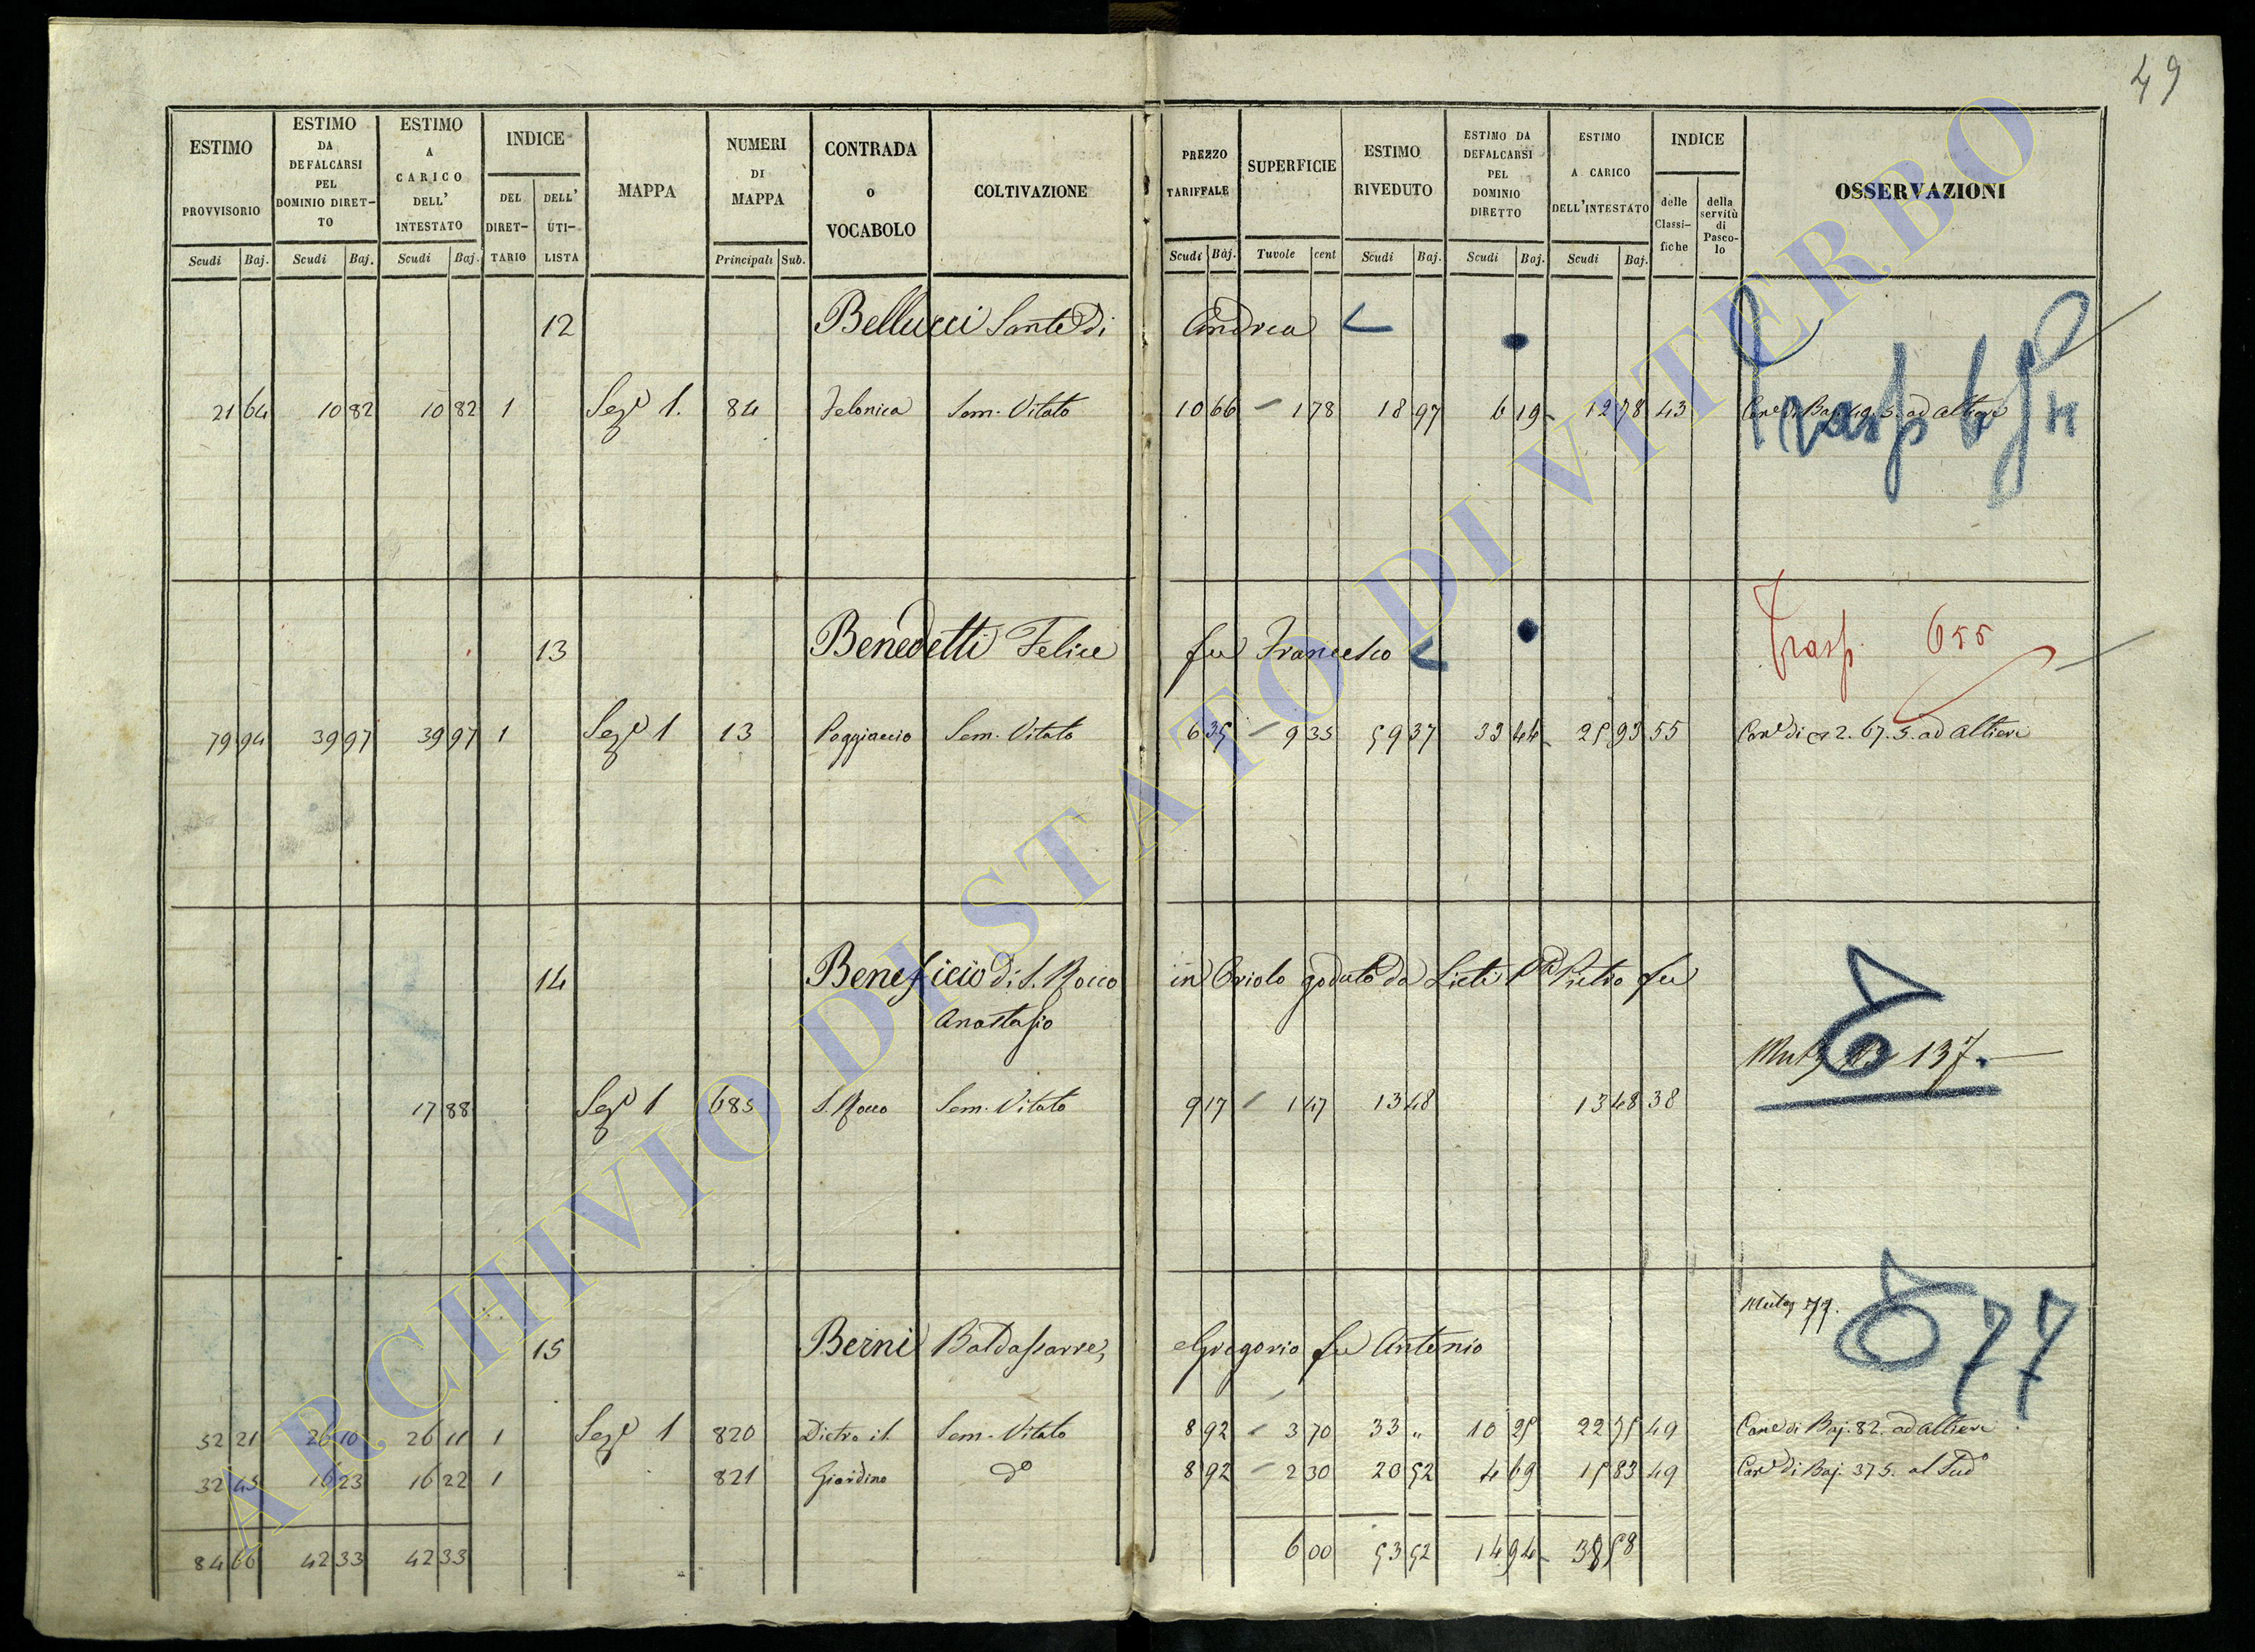 49
ESTIMO PROVVISORIO Scudi Baj.
ESTIMO DA DEFALCARSI PEL DOMINIO DIRET-TO Scudi Baj.
ESTIMO A CARICO DELL' INTESTATO Scudi Baj.
INDICE DEL DIRET-TARIO DELL' UTI-LISTA
MAPPA
NUMERI DI MAPPA Principali Sub.
CONTRADA o VOCABOLO
COLTIVAZIONE
PREZZO TARIFFALE Scudi Baj.
SUPERFICIE Tavole cent
ESTIMO RIVEDUTO Scudi Baj.
ESTIMO DA DEFALCARSI PEL DOMINIO DIRETTO Scudi Baj.
ESTIMO A CARICO DELL'INTESTATO Scudi Baj.
INDICE delle Classi-fiche della servitù di Pasco-lo
OSSERVAZIONI
12 Bellucci Sante di Andrea
21 64 10 82 10 82 1 Sez.e 1. 84 Felonica Sem. Vitato 10 66 1 78 18 97 6 19 12 78 43 Can.e di Baj. 49.5. ad Altieri
Trasp
13 Benedetti Felice fu Francesco
Trasp. 655
79 94 39 97 39 97 1 Sez.e 1 13 Poggiaccio Sem. Vitato 6 35 9 35 59 37 33 44 25 93 55 Can.e di 2.67.5. ad Altieri
14 Beneficio di S. Rocco in Oriolo goduto da Pietro fu
Anastasio
137.
17 88 Sez.e 1 685 S. Rocco Sem. Vitato 9 17 1 47 13 48 13 48 38
Mutaz 77.
77
15 Berni Baldassarre, e Gregorio fu Antonio
52 21 26 10 26 11 1 Sez.e 1 820 Dietro il Sem. Vitato 8 92 3 70 33 " 10 25 22 75 49 Can.e di Baj. 82. ad Altieri
32 45 16 23 16 22 1 821 Giardino d.o 8 92 2 30 20 52 4 69 15 83 49 Can.e di Baj. 37 5. al Sud.o
84 66 42 33 42 33 6 00 53 52 14 94 38 58
ARCHIVIO DI STATO DI VITERBO